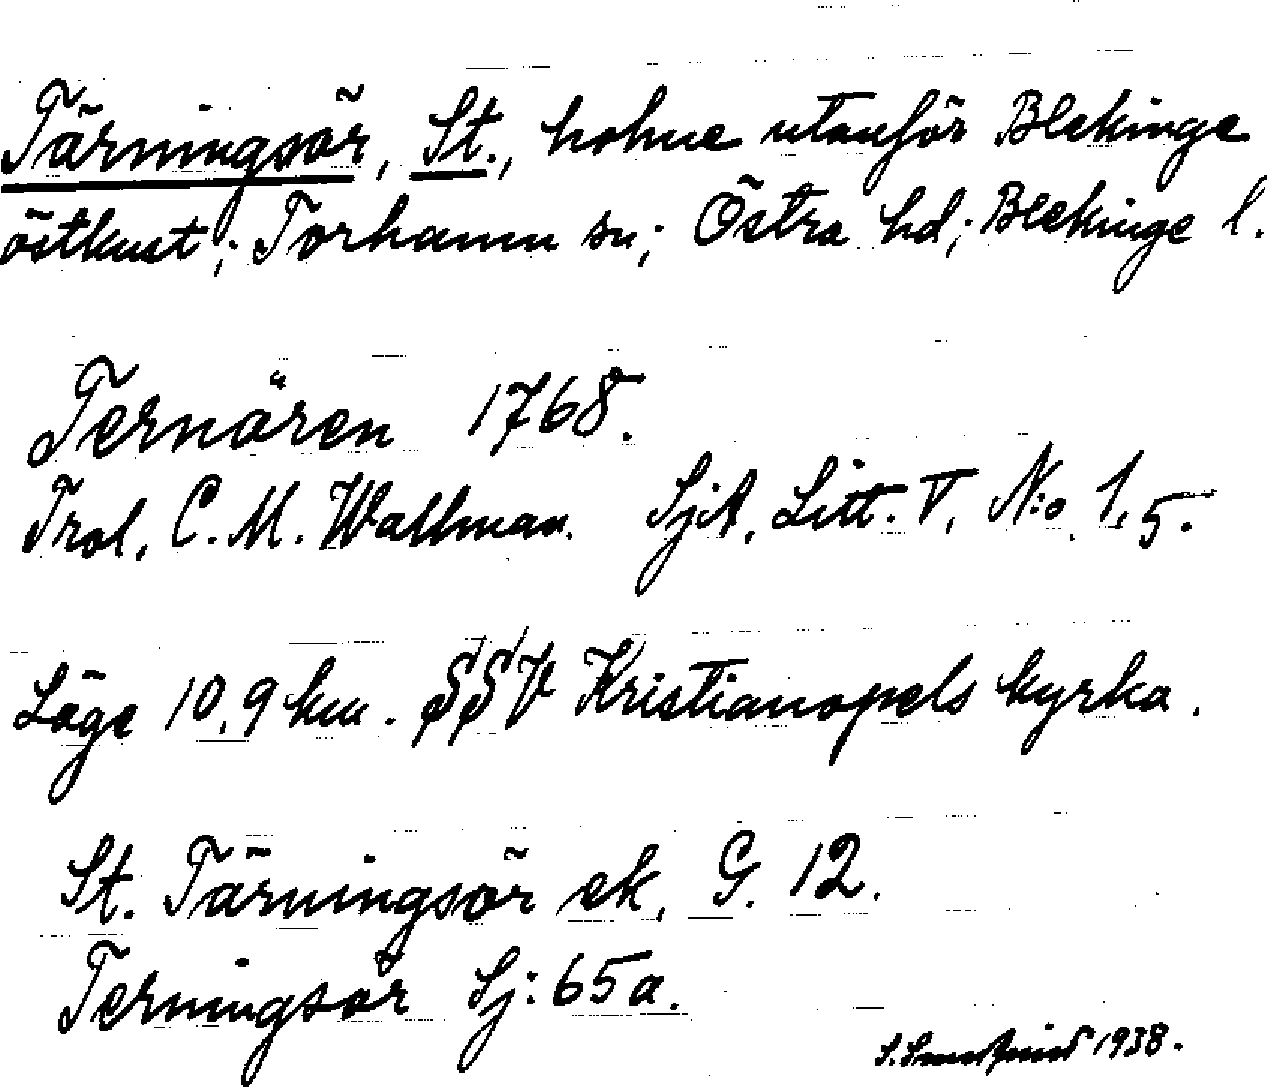 Tärningsör, St., holme utanför Blekinge
östkust; Torhamn sn; Östra hd; Blekinge l.
Ternören 1768.
Trol. C. M. Wallman. SjA, Litt. V, N:o 1,5.
Läge 10,9 km. SSV Kristianopels kyrka.
St. Tärningsör ek, G. 12.
Terningsör Sj: 65a.
1938.